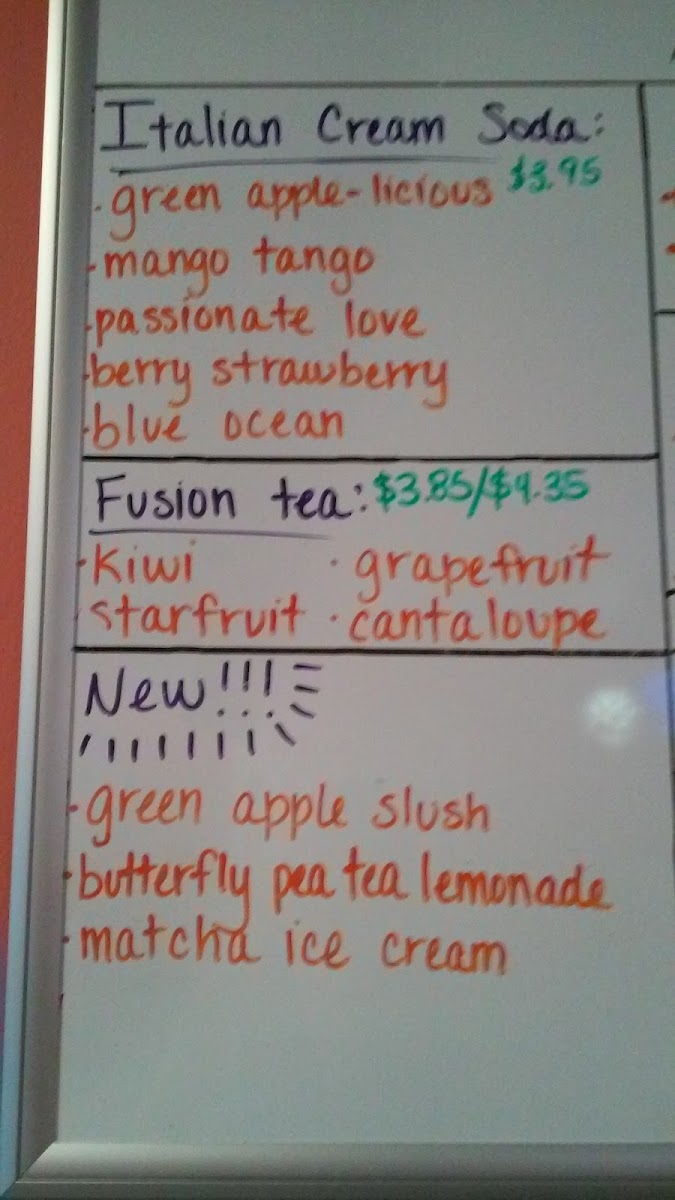 Italian Cream Soda:
· green apple-licious $3.95
· mango tango
· passionate love
· berry strawberry
· blue ocean
Fusion tea: $3.85/$4.35
· Kiwi · grapefruit
· starfruit · cantaloupe
New!!!
· green apple slush
· butterfly pea tea lemonade
· matcha ice cream